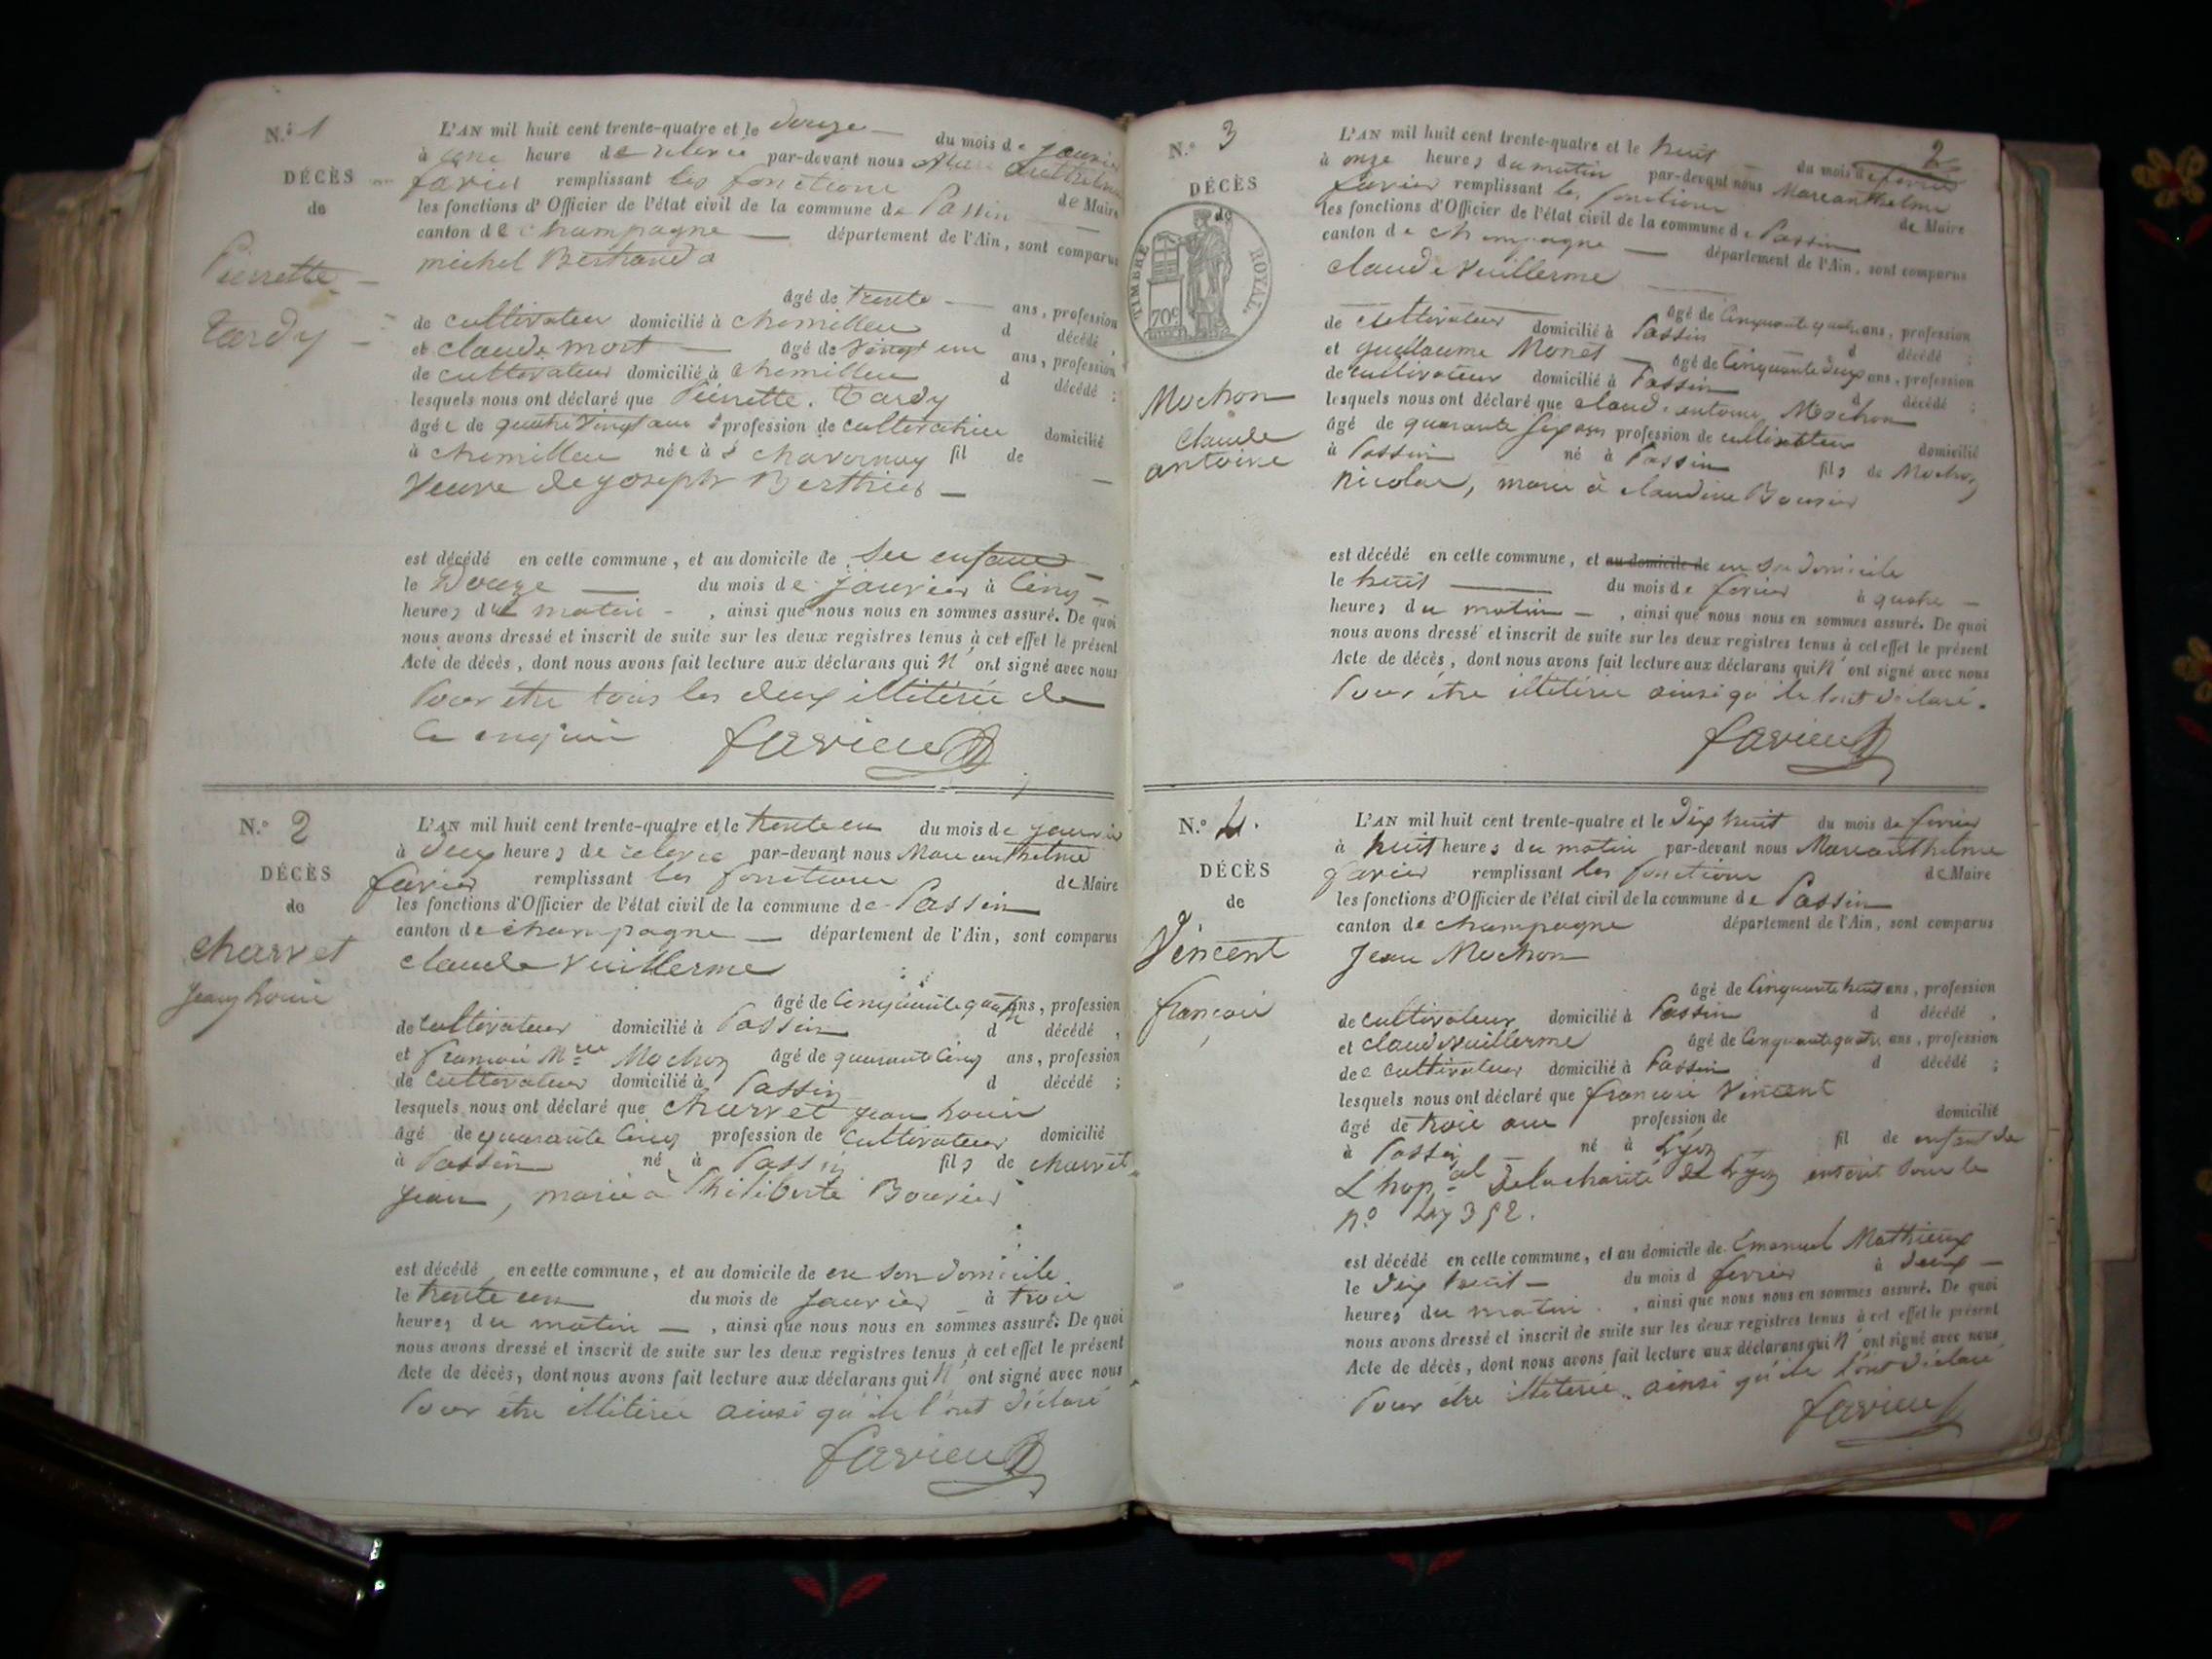 N.° 1
DÉCÈS
de
Pierrette
Tardy
L'AN mil huit cent trente-quatre et le douze du mois de janvier
à une heure de relevée par-devant nous Marc anthelme
favier remplissant les fonctions de Maire
les fonctions d'Officier de l'état civil de la commune de Passin
canton de champagne département de l'Ain, sont comparus
michel Bertrand
âgé de trente ans, profession
de cultivateur domicilié à chemilleu d décédé,
et claude mort âgé de vingt un ans, profession
de cultivateur domicilié à chemilleu d décédé ;
lesquels nous ont déclaré que Pierrette Tardy
âgée de quatre vingt ans profession de cultivatrice domicilié
à chemilleu née à chavornay fil de
veuve de joseph Berthier
est décédé en cette commune, et au domicile de ses enfans
le Douze du mois de janvier à cinq
heures du matin , ainsi que nous nous en sommes assuré. De quoi
nous avons dressé et inscrit de suite sur les deux registres tenus à cet effet le présent
Acte de décès, dont nous avons fait lecture aux déclarans qui n' ont signé avec nous
Pour être tous les deux illitérée de
ce enquis favier
N.° 2
DÉCÈS
de
charvet
jean louis
L'AN mil huit cent trente-quatre et le trente un du mois de janvier
à deux heures de relevée par-devant nous Marc anthelme
favier remplissant les fonctions de Maire
les fonctions d'Officier de l'état civil de la commune de Passin
canton de champagne département de l'Ain, sont comparus
claude vuillerme
âgé de cinquante quatre ans, profession
de cultivateur domicilié à Passin d décédé,
et françois M.rie Mochon âgé de quarante cinq ans, profession
de cultivateur domicilié à Passin d décédé ;
lesquels nous ont déclaré que charvet jean louis
âgé de quarante cinq profession de cultivateur domicilié
à Passin né à Passin fils de charvet
jean, marié à Philiberte Bouvier
est décédé en cette commune, et au domicile de en son domicile
le trente un du mois de janvier à trois
heures du matin , ainsi que nous nous en sommes assuré. De quoi
nous avons dressé et inscrit de suite sur les deux registres tenus à cet effet le présent
Acte de décès, dont nous avons fait lecture aux déclarans qui n' ont signé avec nous
Pour être illitérée ainsi qu'ils l'ont déclaré
favier
2
N.° 3
DÉCÈS
de
TIMBRE ROYAL.
70c
Mochon
claude
antoine
L'AN mil huit cent trente-quatre et le huit du mois de fevrier
à onze heures du matin par-devant nous Marc anthelme
favier remplissant les fonctions de Maire
les fonctions d'Officier de l'état civil de la commune de Passin
canton de champagne département de l'Ain, sont comparus
claude vuillerme
âgé de cinquante quatre ans, profession
de cultivateur domicilié à Passin d décédé ;
et guillaume Monet âgé de cinquante deux ans, profession
de cultivateur domicilié à Passin d décédé ;
lesquels nous ont déclaré que claude antoine Mochon
âgé de quarante six ans profession de cultivateur domicilié
à Passin né à Passin fils de Mochon
Nicolas, marié à claudine Bouvier
est décédé en cette commune, et au domicile de en son domicile
le huit du mois de fevrier à quatre
heures du matin , ainsi que nous nous en sommes assuré. De quoi
nous avons dressé et inscrit de suite sur les deux registres tenus à cet effet le présent
Acte de décès, dont nous avons fait lecture aux déclarans qui n' ont signé avec nous
Pour être illitérée ainsi qu'ils l'ont déclaré.
favier
N.° 4.
DÉCÈS
de
Vincent
françois
L'AN mil huit cent trente-quatre et le dix huit du mois de fevrier
à huit heures du matin par-devant nous Marc anthelme
favier remplissant les fonctions de Maire
les fonctions d'Officier de l'état civil de la commune de Passin
canton de champagne département de l'Ain, sont comparus
Jean Mochon
âgé de cinquante huit ans, profession
de cultivateur domicilié à Passin d décédé,
et claude vuillerme âgé de cinquante quatre ans, profession
de cultivateur domicilié à Passin d décédé ;
lesquels nous ont déclaré que françois Vincent
âgé de trois ans profession de domicilié
à Passin né à Lyon fil de enfant de
L'hop.al de la charité de Lyon sous le
n.°
est décédé en cette commune, et au domicile de Emanuel Mathieux
le dix huit du mois d fevrier à deux
heures du matin , ainsi que nous nous en sommes assuré. De quoi
nous avons dressé et inscrit de suite sur les deux registres tenus à cet effet le présent
Acte de décès, dont nous avons fait lecture aux déclarans qui n' ont signé avec nous
Pour être illitérée ainsi qu'ils l'ont déclaré
favier